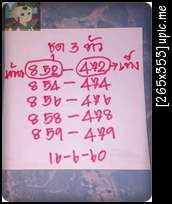 ชุด 3 ตัว
852 - 472 เต็ง
854 - 474
856 - 476
858 - 478
859 - 479
16-6-60
[265x353] uplc.me